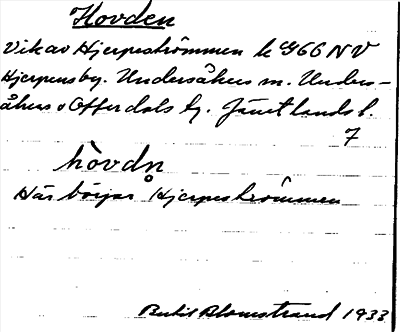 Hovden
Vik av Hjerpeströmmen k 966 NV
Hjerpens by. Undersåkers sn. Unders-
åkers o Offerdals tg. Jämtlands l.
7
hòvdn̥
Här börjar Hjerpeströmmen
Bertil Blomstrand 1933